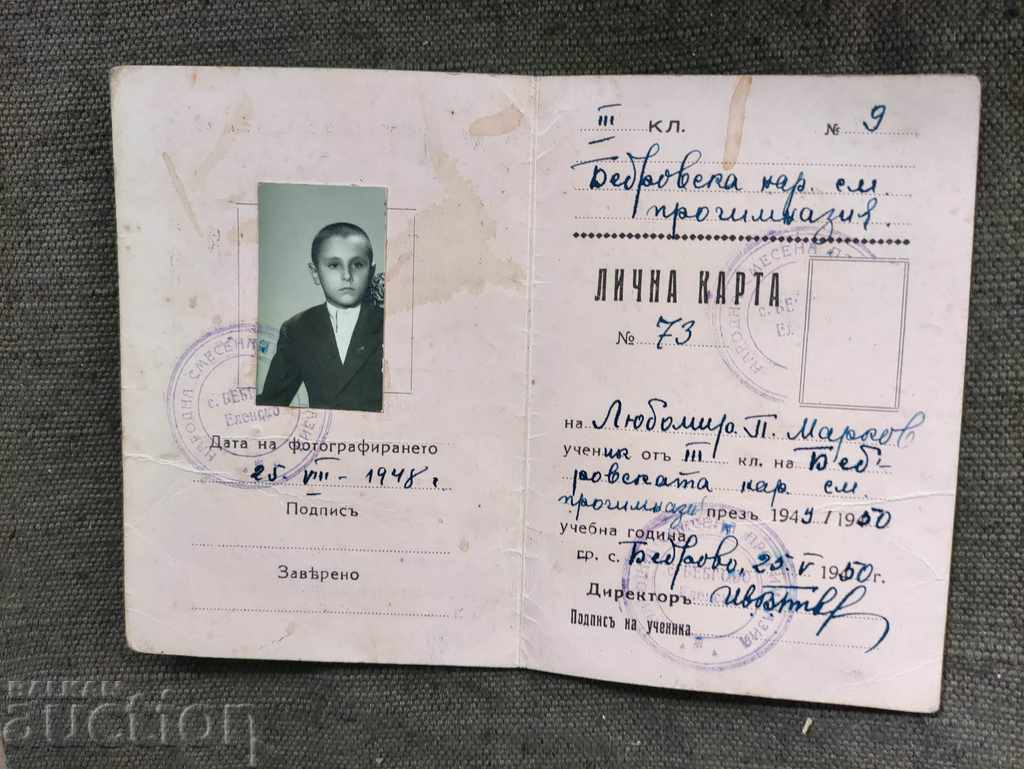 НАРОДНА СМЕСЕНА
с. БЕБРОВО
Еленско
Дата на фотографирането
25. VIII - 1948 г
Подписъ
Завѣрено
III кл. № 9
Бебровска нар. см.
прогимназия
ЛИЧНА КАРТА
№ 73
НАРОДНА СМЕСЕНА
на Любомир. П. Марков
ученик отъ III кл. на Беб-
ровската нар. см.
прогимназия презъ 1949/1950
учебна година
гр. с. Беброво, 25. V 1950 г.
Директоръ
Подписъ на ученика
с. БЕБРОВО
БАЛКАН
auction